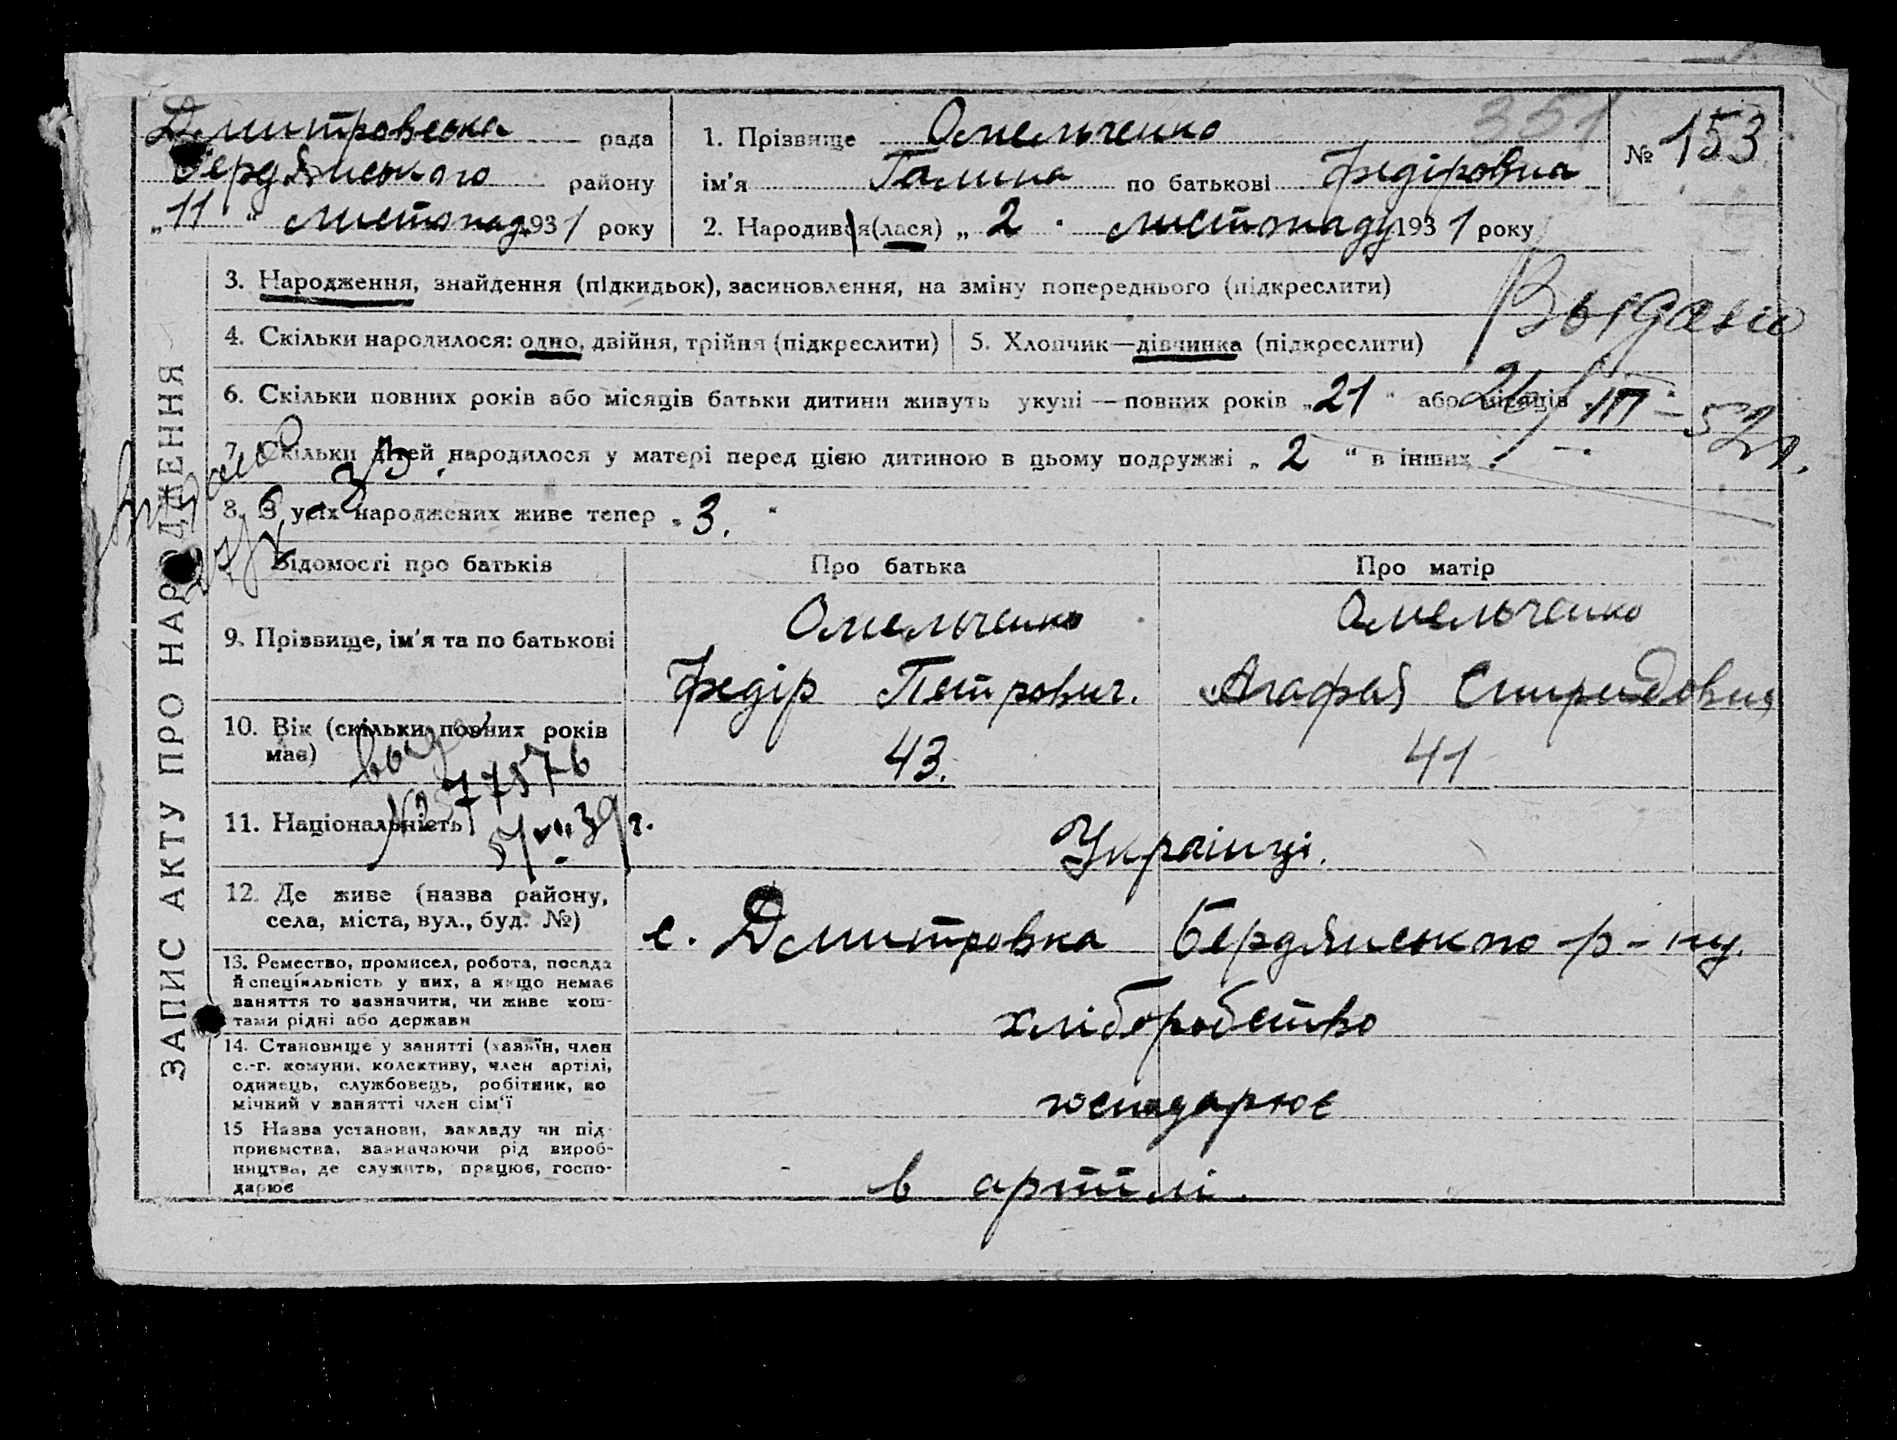 Дмитровська рада
Бердянського району
„11“ листопад 1931 року
351
1. Прізвище Омельченко
ім'я Галина по батькові Федіровна
2. Народився(лася) „2“ листопаду 1931 року
№ 153
ЗАПИС АКТУ ПРО НАРОДЖЕННЯ
3. Народження, знайдення (підкидьок), засиновлення, на зміну попереднього (підкреслити)
Выдано
4. Скільки народилося: одно, двійня, трійня (підкреслити)
5. Хлопчик—дівчинка (підкреслити)
6. Скільки повних років або місяців батьки дитини живуть укупі—повних років „21“ або місяців
26/III–52г.
7. Скільки дітей народилося у матері перед цією дитиною в цьому подружжі „2“ в інших
8. З усіх народжених живе тепер „3.“
Відомості про батьків
Про батька
Про матір
9. Прізвище, ім'я та по батькові
Омельченко
Федір Петрович.
Омельченко
Агафья Спиридовна
10. Вік (скільки повних років
має)
43.
41
№ 277576
5/VII 39 г.
11. Національність
Українці.
12. Де живе (назва району,
села, міста, вул., буд. №)
с. Дмитровка Бердянського р-ну.
13. Ремество, промисел, робота, посада
й спеціяльність у них, а якщо немає
заняття то зазначити, чи живе кош-
тами рідні або держави
хліборобство
14. Становище у занятті (хазяїн, член
с.-г. комуни, колективу, член артілі,
одинець, службовець, робітник, по
мічний у занятті член сім'ї
господарює
15 Назва установи, закладу чи під-
приємства, зазначаючи рід вироб-
ництва, де служить, працює, госпо-
дарює
в артілі.